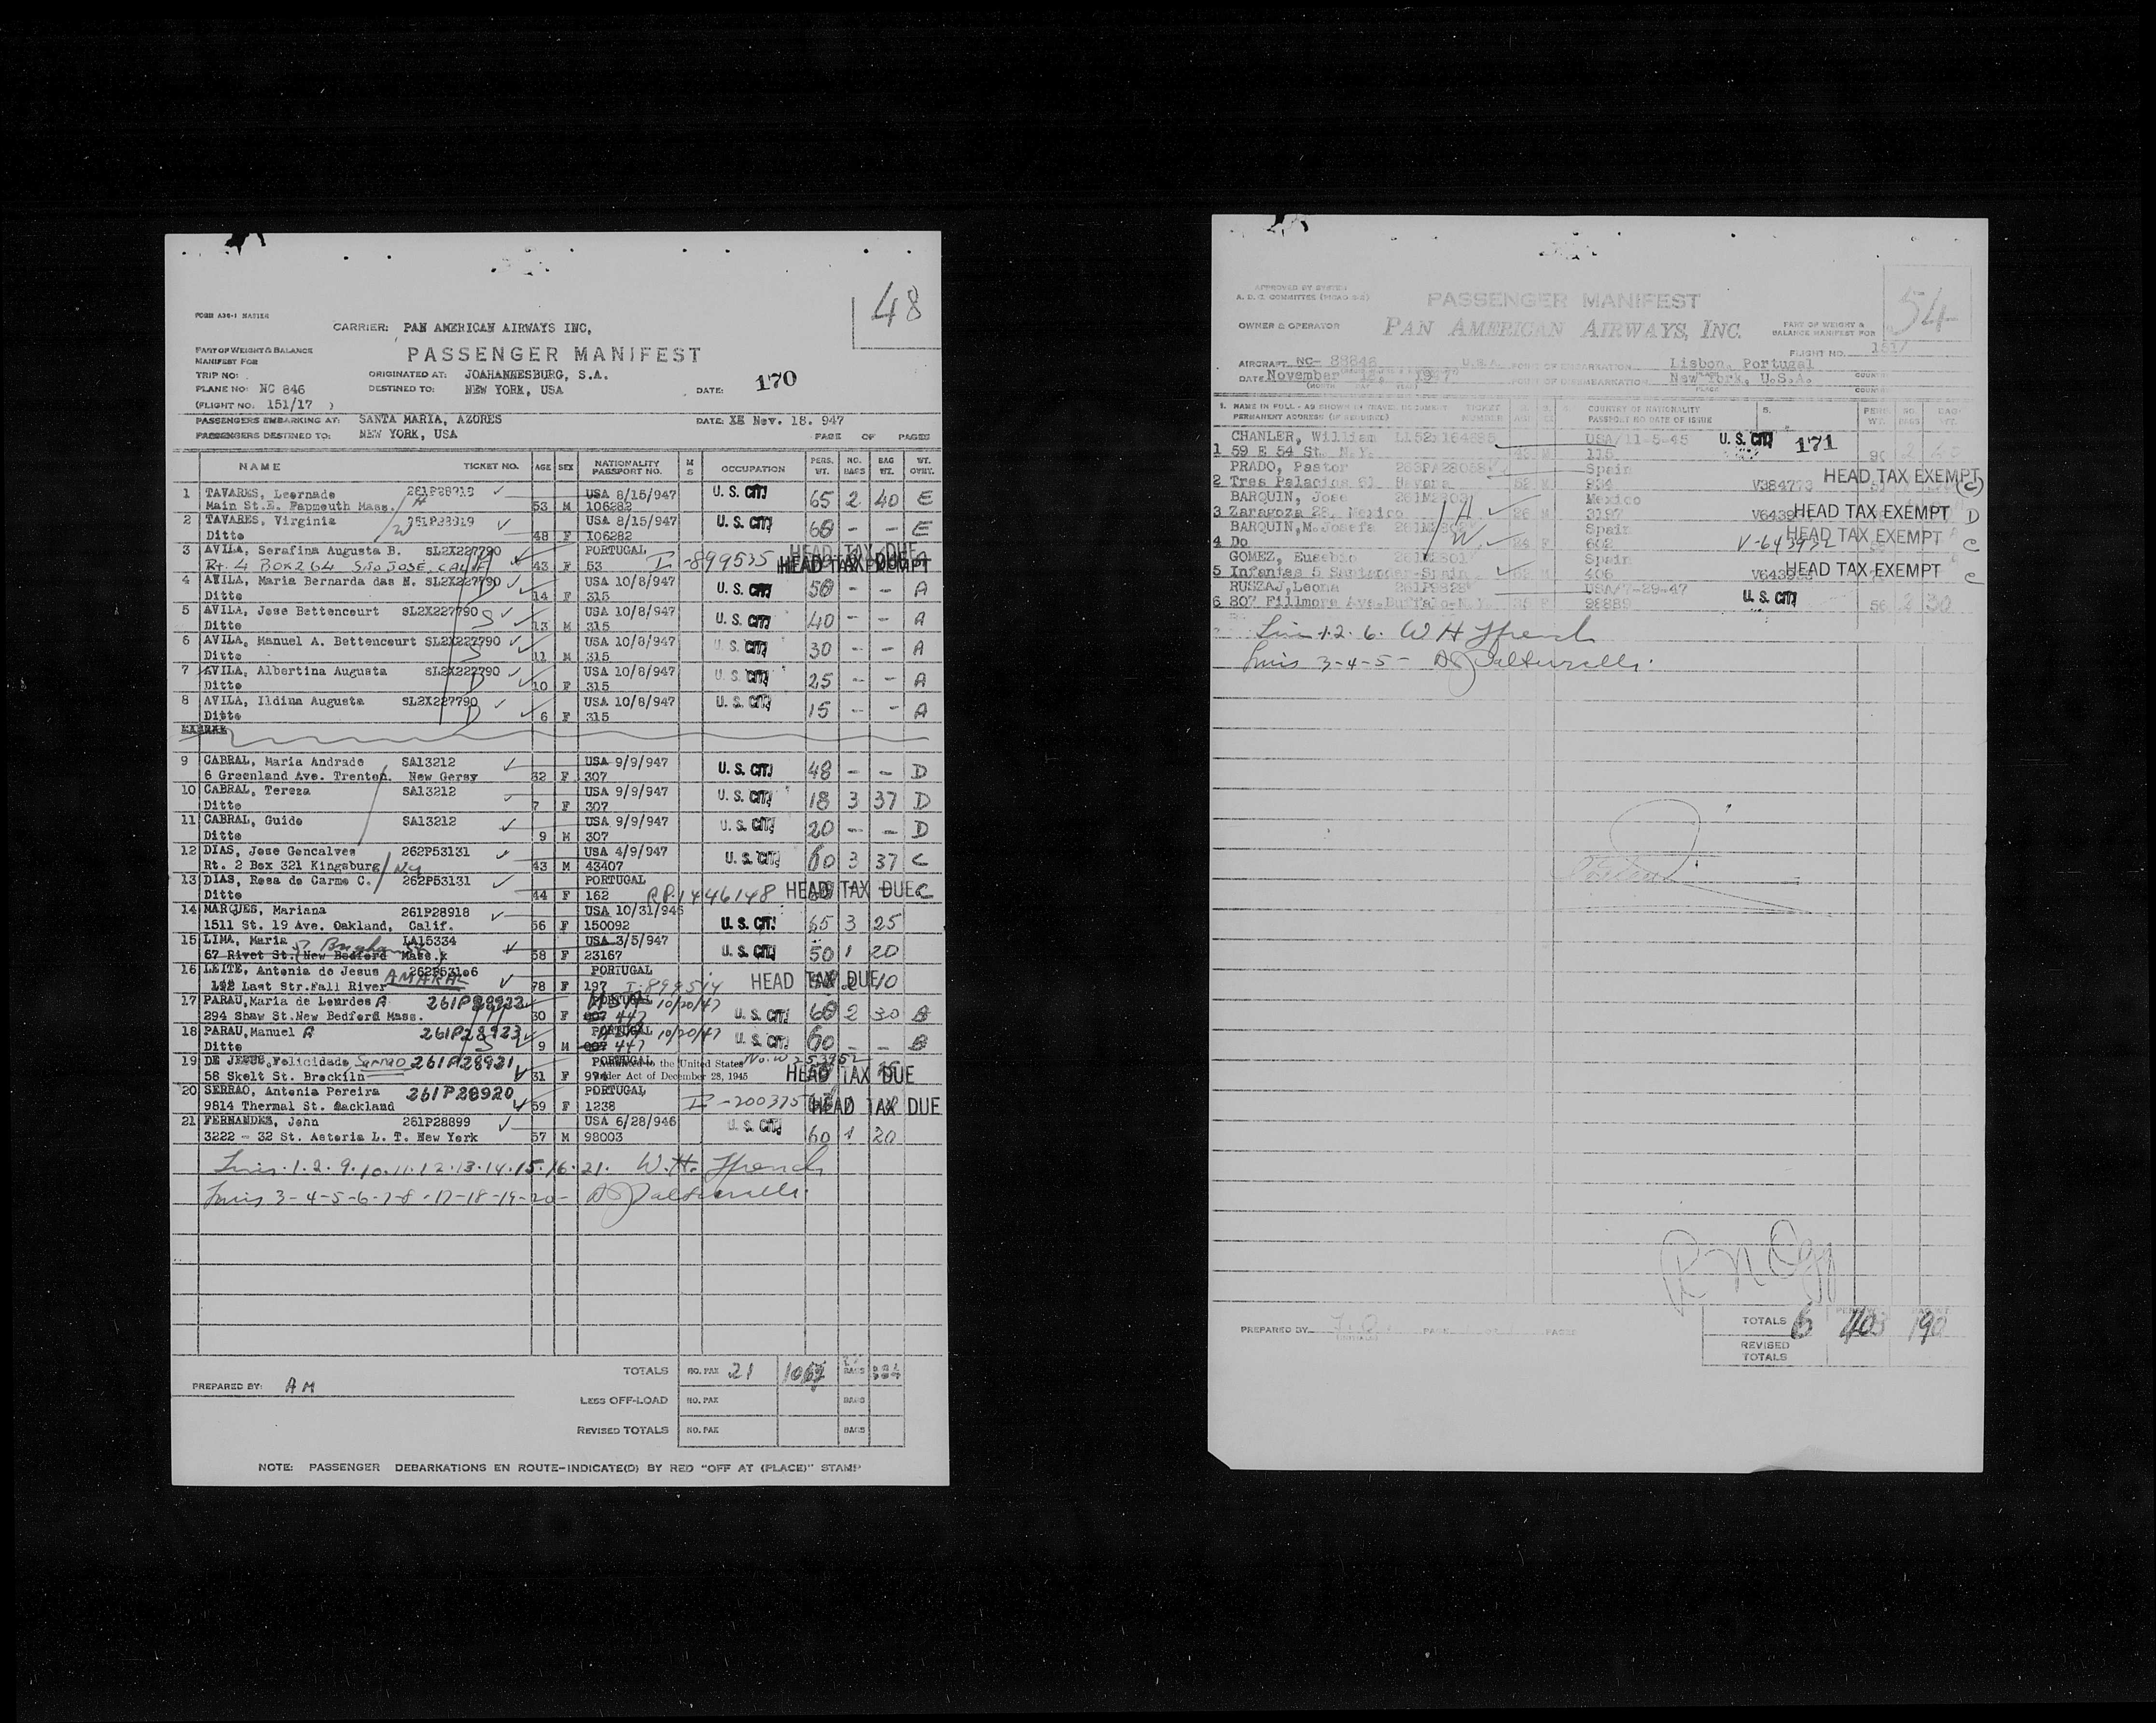 48
FORM A36-1 MASTER
CARRIER: PAN AMERICAN AIRWAYS INC,
PART OF WEIGHT & BALANCE
MANIFEST FOR
PASSENGER MANIFEST
TRIP NO:
ORIGINATED AT: JOAHANNESBURG, S.A.
PLANE NO: NC 846
DESTINED TO: NEW YORK, USA
DATE: 170
(FLIGHT NO. 151/17 )
PASSENGERS EMBARKING AT: SANTA MARIA, AZORES
DATE: Nov. 18. 947
PASSENGERS DESTINED TO: NEW YORK, USA
PAGE OF PAGES
NAME TICKET NO. AGE SEX NATIONALITY PASSPORT NO. M S OCCUPATION PERS. WT. NO. BAGS BAG WT. WT. CTRY.
1 TAVARES, Leernade 261P28919 USA 8/15/947 U. S. CIT. 65 2 40 E
Main St.E. Fapmouth Mass. H 53 M 106282
2 TAVARES, Virginia 261P28919 USA 8/15/947 U. S. CIT. 60 - - E
Ditto W 48 F 106282
3 AVILA, Serafina Augusta B. SL2X227790 PORTUGAL I-899535 HEAD TAX DUE HEAD TAX EXEMPT
Rt. 4 Box 264 São José, Calif 43 F 53
4 AVILA, Maria Bernarda das N. SL2X227790 D USA 10/8/947 U. S. CIT. 50 - - A
Ditto 14 F 315
5 AVILA, Jose Bettencourt SL2X227790 S USA 10/8/947 U. S. CIT. 40 - - A
Ditto 13 M 315
6 AVILA, Manuel A. Bettencourt SL2X227790 S USA 10/8/947 U. S. CIT. 30 - - A
Ditto 11 M 315
7 AVILA, Albertina Augusta SL2X227790 D USA 10/8/947 U. S. CIT. 25 - - A
Ditto 10 F 315
8 AVILA, Ildina Augusta SL2X227790 D USA 10/8/947 U. S. CIT. 15 - - A
Ditto 6 F 315
9 CABRAL, Maria Andrade SA13212 USA 9/9/947 U. S. CIT. 48 - - D
6 Greenland Ave. Trenton. New Gersy 32 F 307
10 CABRAL, Tereza SA13212 USA 9/9/947 U. S. CIT. 18 3 37 D
Ditto 7 F 307
11 CABRAL, Guido SA13212 USA 9/9/947 U. S. CIT. 20 - - D
Ditto 9 M 307
12 DIAS, Jose Goncalves 262P53131 USA 4/9/947 U. S. CIT. 60 3 37 C
Rt. 2 Box 321 Kingsburg 43 M 43407
13 DIAS, Rosa do Carmo C. 262P53131 PORTUGAL HEAD TAX DUE C
Ditto 44 F 162 RP.1446148
14 MARQUES, Mariana 261P28918 USA 10/31/946 U. S. CIT. 65 3 25
1511 St. 19 Ave. Oakland, Calif. 56 F 150092
15 LIMA, Maria LA15334 USA 3/5/947 U. S. CIT. 50 1 20
67 Rivet St. (New Bedford Mass.) 58 F 23167
16 LEITE, Antonia de Jesus AMARAL 262P53106 PORTUGAL I-899514 HEAD TAX DUE 10
Last Str.Fall River 78 F 197
17 PARAU,Maria de Lourdes A 261P28922 PORTUGAL 10/20/47 U. S. CIT. 60 2 30 B
294 Shaw St.New Bedford Mass. 30 F 447
18 PARAU,Manuel A 261P28923 PORTUGAL 10/20/47 U. S. CIT. 60 - - B
Ditto S 9 M 447
19 DE JESUS,Felicidade Serrao 261P28921 PORTUGAL Admitted to the United States HEAD TAX DUE
58 Skelt St. Brockiln 31 F under Act of December 28, 1945
20 SERRAO, Antonia Pereira 261P28920 PORTUGAL I-200375 HEAD TAX DUE
9814 Thermal St. Oackland 59 F 1238
21 FERNANDEZ, John 261P28899 USA 6/28/946 U. S. CIT. 60 1 20
3222 - 32 St. Astoria L. T. New York 57 M 98003
1.2.9.10.11.12.13.14.15.16.21. W.H. Ffrench
3-4-5-6-7-8-17-18-19-20-
TOTALS NO. PAX 21 BAGS
PREPARED BY: AM
LESS OFF-LOAD NO. PAX BAGS
REVISED TOTALS NO. PAX BAGS
NOTE: PASSENGER DEBARKATIONS EN ROUTE-INDICATE(D) BY RED "OFF AT (PLACE)" STAMP
54
APPROVED BY SYSTEM
PASSENGER MANIFEST
OWNER & OPERATOR PAN AMERICAN AIRWAYS, INC.
PART OF WEIGHT & BALANCE MANIFEST FOR
FLIGHT NO.
AIRCRAFT NC- 88846 U.S.A. POINT OF EMBARKATION Lisbon, Portugal
DATE November 18, 1947 PORT OF DISEMBARKATION New York, U.S.A.
1. NAME IN FULL - AS SHOWN IN TRAVEL DOCUMENT TICKET NUMBER COUNTRY OF NATIONALITY
PERMANENT ADDRESS PASSPORT NO DATE OF ISSUE
CHANLER, William USA/11-5-45 U. S. CIT. 171
1 59 E 54 St. N.Y. 115
PRADO, Pastor Spain HEAD TAX EXEMPT
2 Tres Palacios 61 Havana 52 M V384773 C
BARQUIN, Jose H Mexico
3 Zaragoza 28, Mexico 26 M 3197 HEAD TAX EXEMPT D
BARQUIN,M.Josefa W Spain
4 Do 24 F 602 V-643932 HEAD TAX EXEMPT C
GOMEZ, Eusebio Spain
5 Infantas 5 Santander-Spain 406 HEAD TAX EXEMPT C
RUSZAJ,Leona USA/7-29-47 U. S. CIT.
6 807 Fillmore Ave.Buffalo-N.Y. 98889 56 2 30
1.2.6. W H Ffrench
3-4-5-
PREPARED BY PAGE PAGES
TOTALS 6 190
REVISED TOTALS